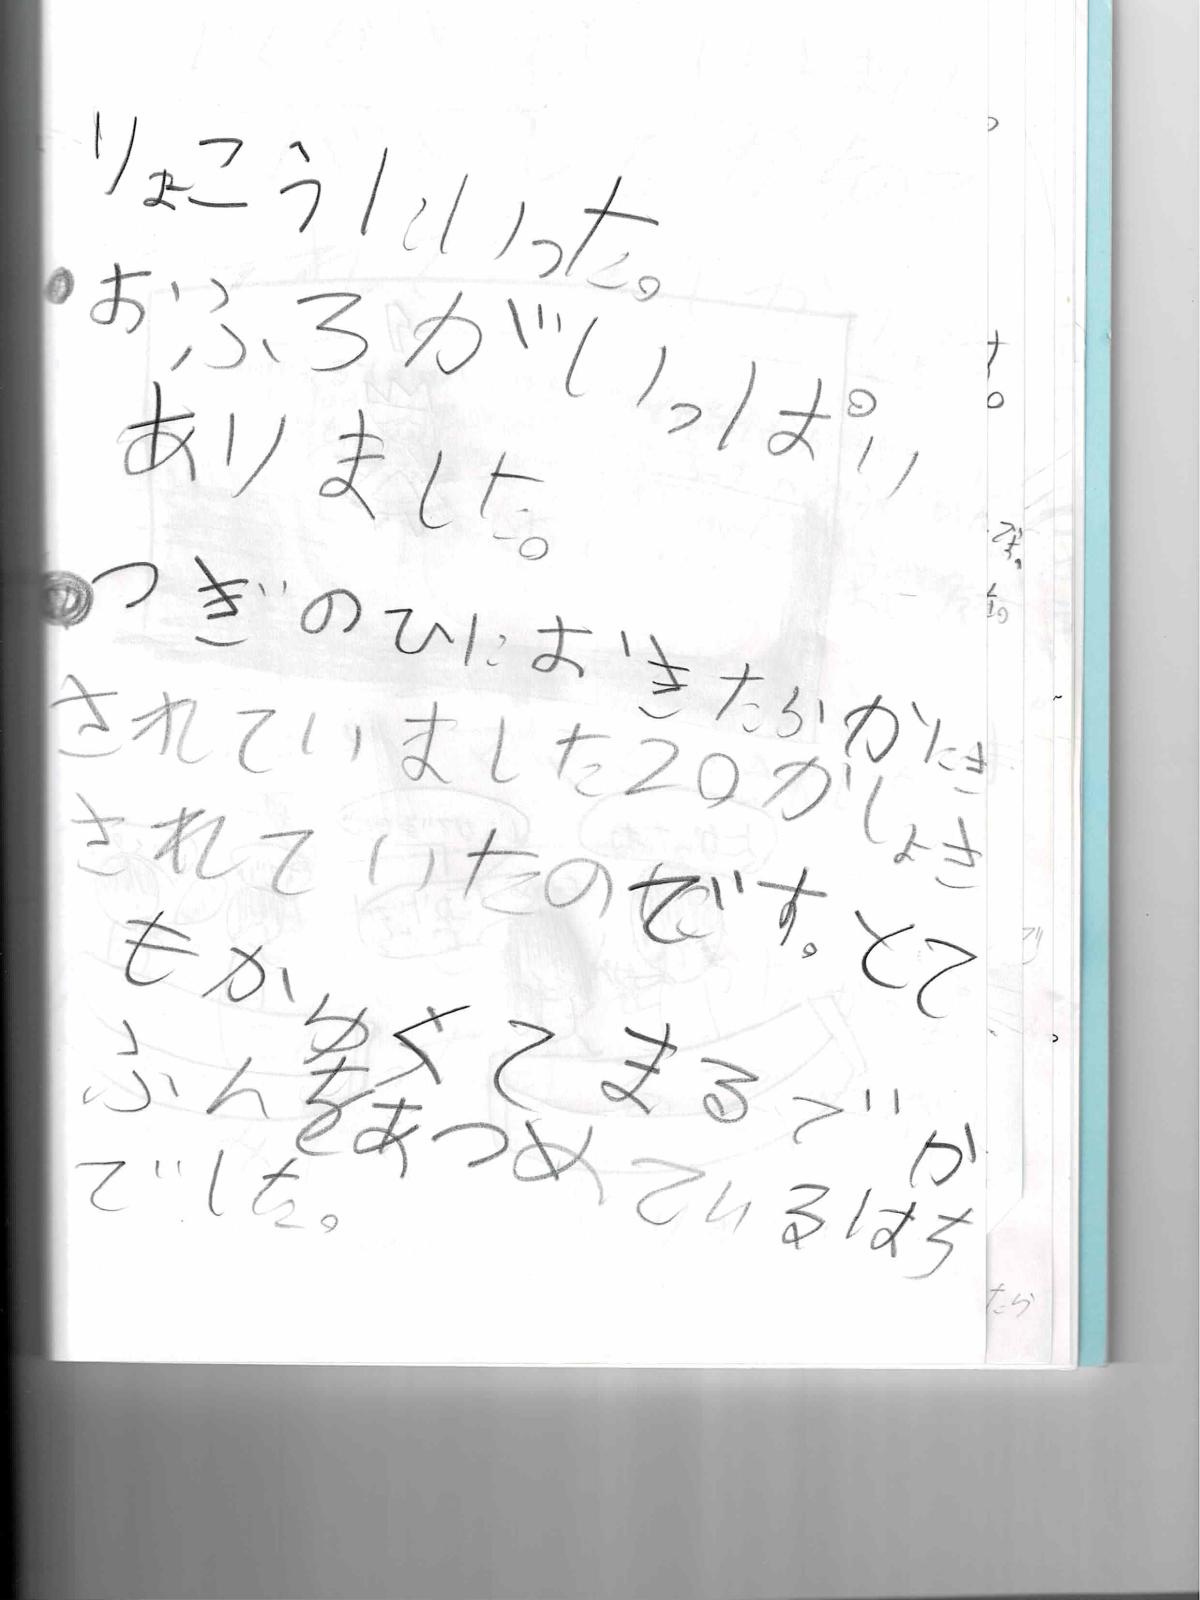 りょこうにいった。
おふろがいっぱい
ありました。
つぎのひにおきたらかにさ
されていました20かしょさ
されていたのです。とて
もかゆくてまるでか
ふんをあつめているはち
でした。